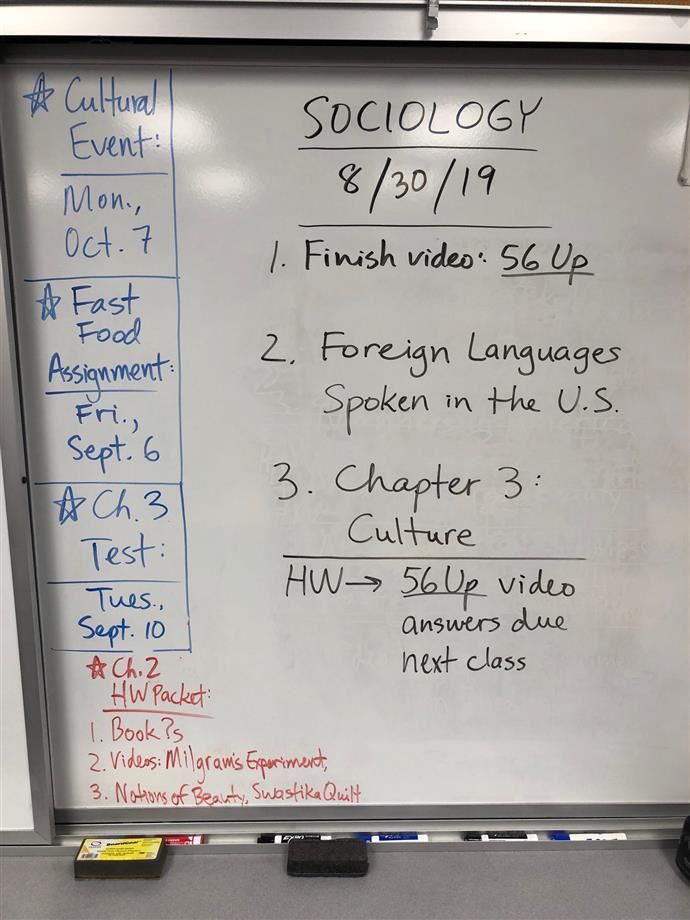 ☆ Cultural
Event:
Mon.,
Oct. 7
☆ Fast
Food
Assignment:
Fri.,
Sept. 6
☆ Ch. 3
Test:
Tues.,
Sept. 10
☆ Ch. 2
HW Packet:
1. Book ?s
2. Videos: Milgram's Experiment,
3. Notions of Beauty, Swastika Quilt
SOCIOLOGY
8/30/19
1. Finish video: 56 Up
2. Foreign Languages
Spoken in the U.S.
3. Chapter 3:
Culture
HW → 56 Up video
answers due
next class